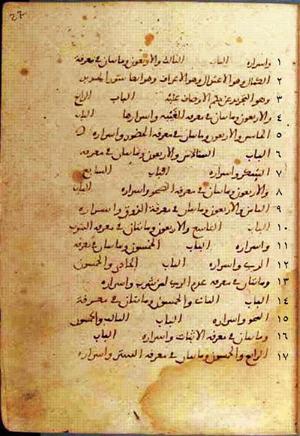 ٢٦
١ واسراره الباب الثالث والاربعون وماتان في معرفة
٢ الكمال وهو الاعتدال وهو الاعراف وهو
٣ وهو عن حكم الاوصاف عليه الباب الرابع
٤ والاربعون وماتان في معرفة الغيبة واسرارها الباب
٥ الخامس والاربعون وماتان في معرفة الحضور واسراره
٦ الباب السادس والاربعون وماتان في معرفة
٧ السكر واسراره الباب السابع
٨ والاربعون وماتان في معرفة الصحو واسراره الباب
٩ الثامن والاربعون وماتان في معرفة الذوق واسراره
١٠ الباب التاسع والاربعون وماتان في معرفة الشرب
١١ واسراره الباب الخمسون وماتان في معرفة
١٢ الري واسراره الباب الحادي والخمسون
١٣ وماتان في معرفة عدم الري لمن شرب واسراره
١٤ الباب الثاني والخمسون وماتان في معرفة
١٥ المحو واسراره الباب الثالث والخمسون
١٦ وماتان في معرفة الاثبات واسراره الباب
١٧ الرابع والخمسون وماتان في معرفة الستر واسراره